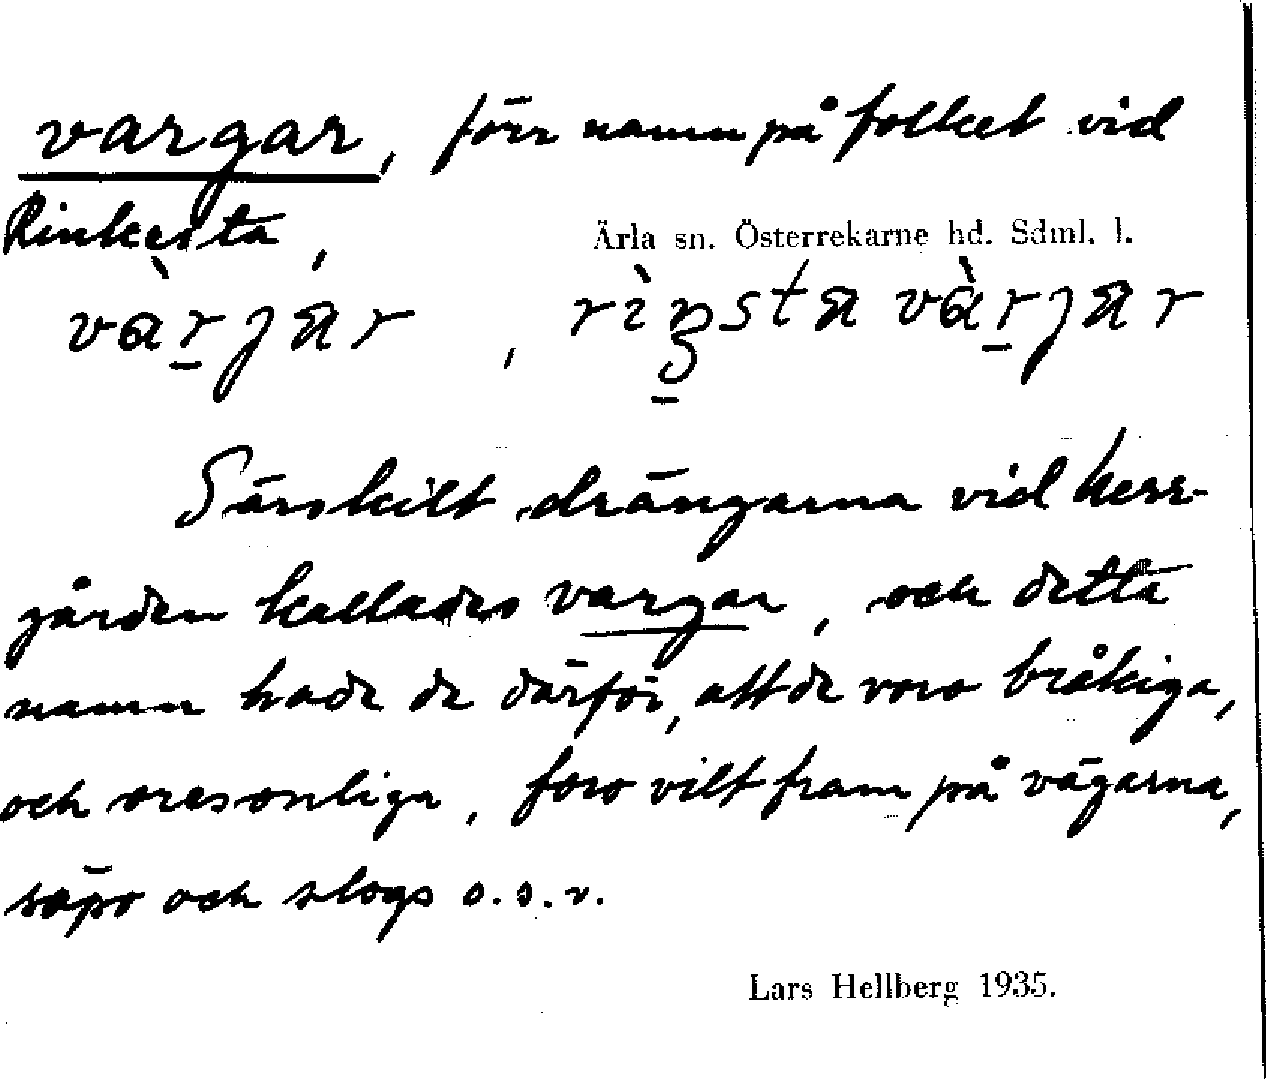 vargar, förr namn på folket vid
Rinkesta,
Ärla sn. Österrekarne hd. Sdml. l.
vàrjar, rìŋsta vàrjar
Särskilt drängarna vid herr-
gården kallades vargar, och detta
namn hade de därför, att de voro bråkiga,
och oresonliga, foro vilt fram på vägarna,
söpo och slogs o.s.v.
Lars Hellberg 1935.